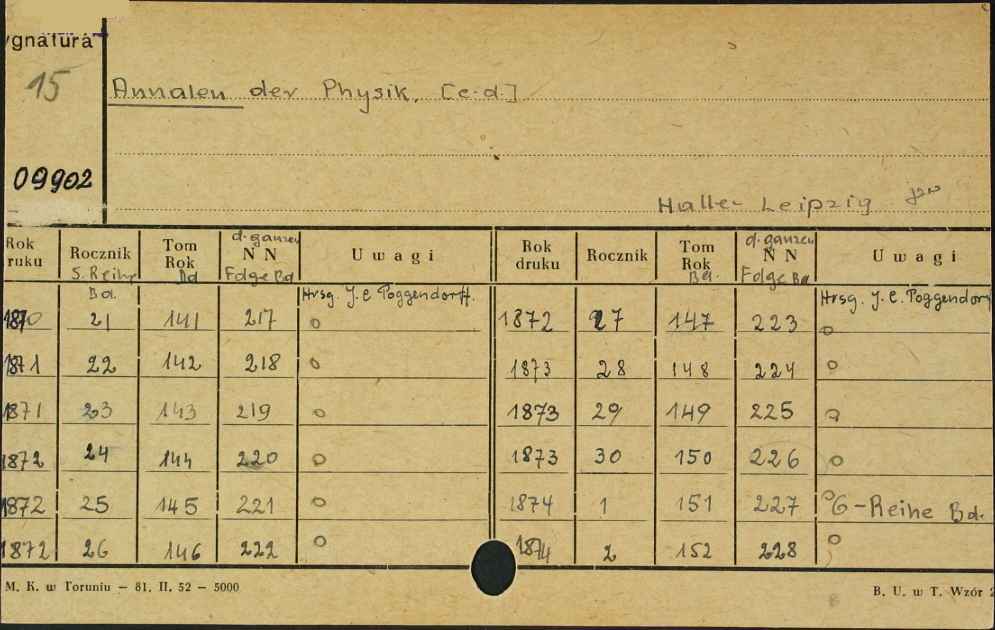 ygnatura
15
Annalen der Physik. [c.d.]
09902
Halle - Leipzig
Rok ruku | Rocznik 5. Reihe Bd. | Tom Rok Bd | d. ganzen N N Folge Bd | Uwagi | Rok druku | Rocznik | Tom Rok Bd. | d. ganzen N N Folge Bd | Uwagi
Hrsg. J. C. Poggendorff. | Hrsg. J. C. Poggendorf
1870 | 21 | 141 | 217 | o | 1872 | 27 | 147 | 223 | o
1871 | 22 | 142 | 218 | o | 1873 | 28 | 148 | 224 | o
1871 | 23 | 143 | 219 | o | 1873 | 29 | 149 | 225 | o
1872 | 24 | 144 | 220 | o | 1873 | 30 | 150 | 226 | o
1872 | 25 | 145 | 221 | o | 1874 | 1 | 151 | 227 | o 6-Reihe Bd.
1872 | 26 | 146 | 222 | o | 1874 | 2 | 152 | 228 | o
M. K. w Toruniu — 81. II. 52 — 5000
B. U. w T. Wzór 2